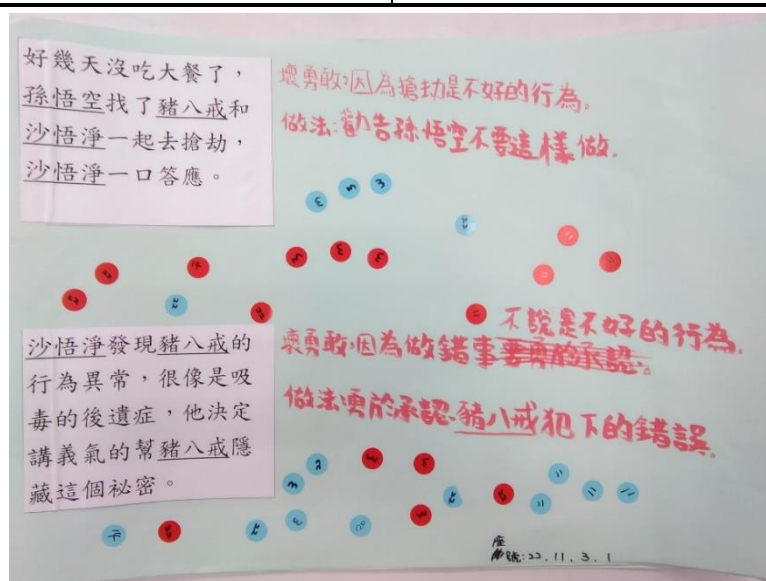 好幾天沒吃大餐了，
孫悟空找了豬八戒和
沙悟淨一起去搶劫，
沙悟淨一口答應。
壞勇敢，因為搶劫是不好的行為。
做法：勸告孫悟空不要這樣做.
沙悟淨發現豬八戒的
行為異常，很像是吸
毒的後遺症，他決定
講義氣的幫豬八戒隱
藏這個祕密。
不說是不好的行為.
壞勇敢，因為做錯事要勇於承認。
做法：勇於承認豬八戒犯下的錯誤.
座
號：22.11.3.1